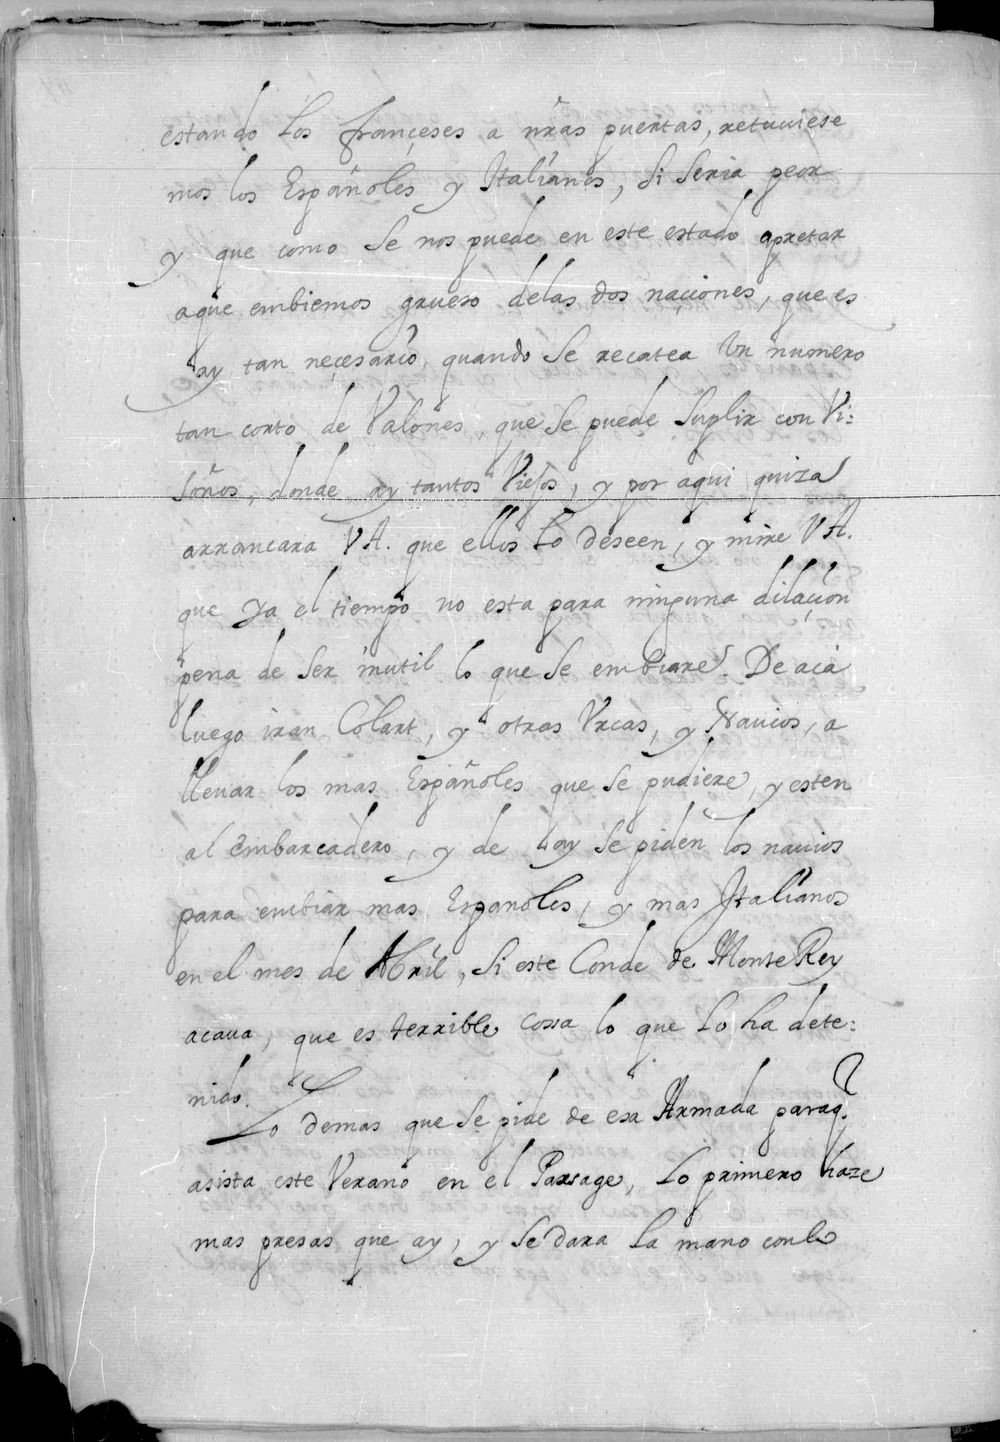 estando los françeses a nr̃as puertas, retuuiese
mos los Españoles y Italianos, si seria peor
y que como se nos puede en este estado apretar
aque embiemos grueso delas dos naçiones, que es
ay tan neçesario, quando se recatea Un numero
tan corto de Valones, que se puede suplir con Vi:
soños, donde ay tantos Viejos, y por aqui quiza
arrancara VA. que ellos lo deseen, y mire VA.
que ya el tiempo no esta para ninguna dilaçion
pena de ser inutil lo que se embiare. De aca
luego iran Colart, y otras Vrcas, y Nauios, a
lleuar los mas Españoles que se pudiere, y esten
al embarcadero, y de ay se piden los nauios
para embiar mas Españoles, y mas Italianos
en el mes de Abril, si este Conde de Monte Rey
acaua, que es terrible cossa lo que lo ha dete:
nido.
Lo demas que se pide de esa Armada paraq.
asista este Verano en el Passage, lo primero haze
mas presas que ay, y se dara la mano conlo